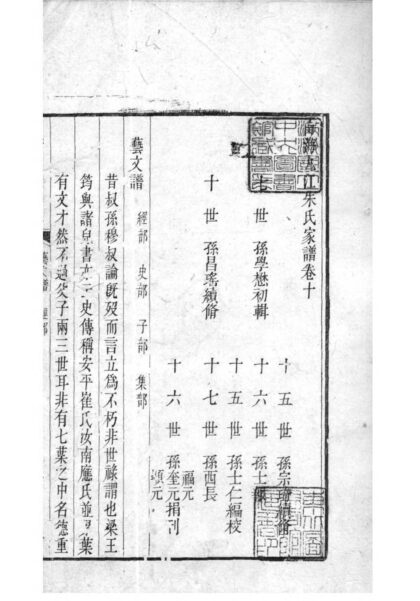 朱氏家譜卷十
世孫學懋初輯
十世孫昌瑤續脩
十五世孫宗
十六世孫士
十五世孫士仁編校
十七世孫酉長
福元
十六世孫奎元捐刊
頌元
藝文譜
經部 史部 子部 集部
昔叔孫穆叔論旣歿而言立爲不朽非世祿謂也梁王
筠與諸兒書云史傳稱安平崔氏汝南應氏並葉
有文才然不過父子兩三世耳非有七葉之中名德重